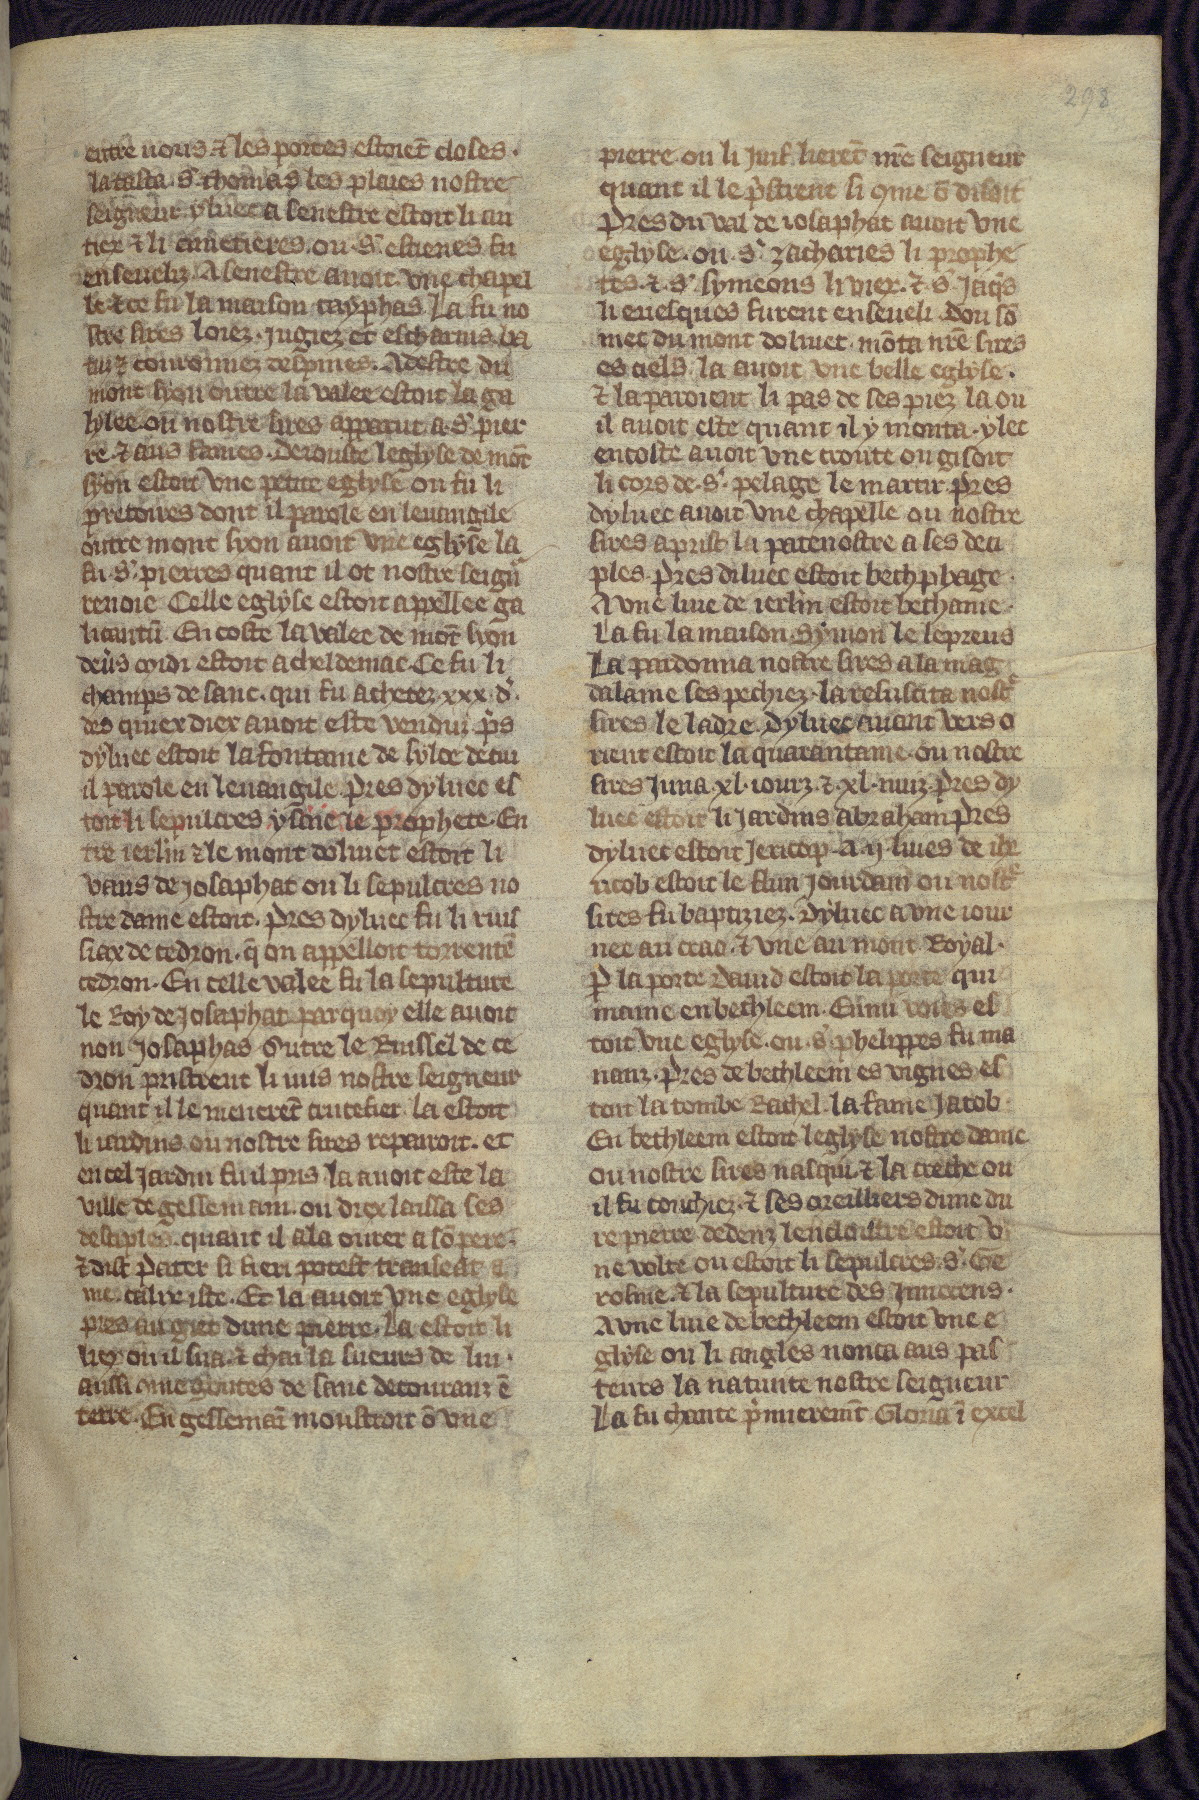 298
entre nous ⁊ les portes estoiēt closes.
la tasta .s'. thomas les plaies nostre
seigneur. yluec a senestre estoit li au
tiex ⁊ li cimetieres. ou .s'. estienes fu
enseueliz. A senestre auoit vne chapel
le ⁊ ce fu la maison cayphas. La fu no
stre sires loiez. jugiez et escharnis. ba
tuz ⁊ couronnez despines. A destre du
mont syon outre la valee estoit la ga
lylee. ou nostre sires apparut a .s'. pier
re. ⁊ aus fames. De iouste leglyse de mōt
syon estoit vne petite eglyse ou fu li
pretoires dont il parole en leuangile
outre mont syon auoit vne eglyse la
fu .s'. pierres quant il ot nostre seignr
renoie Celle eglyse estoit appellee ga
licantū. En coste la valee de mōt syon
deůs midi estoit acheldemac. Ce fu li
champs de sanc. qui fu achetez .xxx. d'.
des quiex diex auoit este venduz. p̄s
dyluec estoit la fontaine de syloe de cui
il parole en leuangile. Pres dyluec es
toit li sepulcres ysaie le prophete. En
tre ierlm̄ ⁊ le mont doliuet estoit li
vaus de josaphat ou li sepulcres no
stre dame estoit. Pres dyluec fu li ruis
siax de cedron. q̄ on appelloit torrentē
cedron. En celle valee fu la sepulture
le Roy de josaphat par quoy elle auoit
non josaphas Outre le Ruissel de ce
dron pristrent li iuis nostre seigneur
quant il le menerēt crucefier. la estoit
li iardins ou nostre sires repairoit. et
en cel jardin fu il pris. la auoit este la
ville de gessemani. ou diex laissa ses
desciples. quant il ala ourer a sō pere.
⁊ dist Pater si fieri potest transeat a
me calix iste. Et la auoit vne eglyse
pres au giet dune pierre. La estoit li
liex ou il sua. ⁊ chai la sueurs de lui.
aussi 9me goutes de sanc decouranz ē
terre. En gessemaī moustroit ō vne
pierre ou li juif lierēt nr̄e seigneur
quant il le p̄strent si 9me ō disoit
Pres du val de iosaphat auoit vne
eglyse. ou .s'. zacharies li prophe
tes. ⁊ .s'. symeons li viex. ⁊ .s'. jaq̄s
li euesques furent enseueli. Dou sō
met du mont doliuet. mōta nr̄e sires
es ciels. la auoit vne belle eglyse.
⁊ la paroient li pas de ses piez la ou
il auoit este quant il y monta. ylec
encoste auoit vne croute ou gisoit
li cors de .s'. pelage le martir. Pres
dyluec auoit vne chapelle ou nostre
sires aprist la patenostre a ses deci
ples. Pres diluec estoit bethphage.
A vne liue de ierlm̄ estoit bethanie.
La fu la maison Symon le lepreus
La pardonna nostre sires a la mag
dalaine ses pechiez. la resuscita nostr̄
sires le ladre. Dyluec auant vers o
rient estoit la quarantaine. ou nostre
sires juna .xl. iourz. ⁊ .xl. nuiz. Pres dy
luec estoit li jardins abraham Pres
dyluec estoit
ricob estoit le flun jourdain ou nostr̄
sires fu baptiziez. Dyluec a vne iour
nee au crac. ⁊ vne au mont Royal.
P̱ la porte dauid estoit la porte qui
maine en bethleem. Enmi voies es
toit vne eglyse. ou .s'. phelippes fu ma
nanz. Pres de bethleem es vignes es
toit la tombe Rachel. la fame Jacob.
En bethleem estoit leglyse nostre dame
ou nostre sires nasqui. ⁊ la creche ou
il fu couchiez. ⁊ ses oreilliers dune du
re pierre. dedenz lencloistre estoit v
ne volte ou estoit li sepulcres .s'. Ge
rosme. ⁊ la sepulture des Jnnocens.
A vne liue de bethleem estoit vne e
glyse ou li angles nonca aus pas
teurs la natiuite nostre seigneur
La fu chante p̄mieremt̄. Gloria ī excel